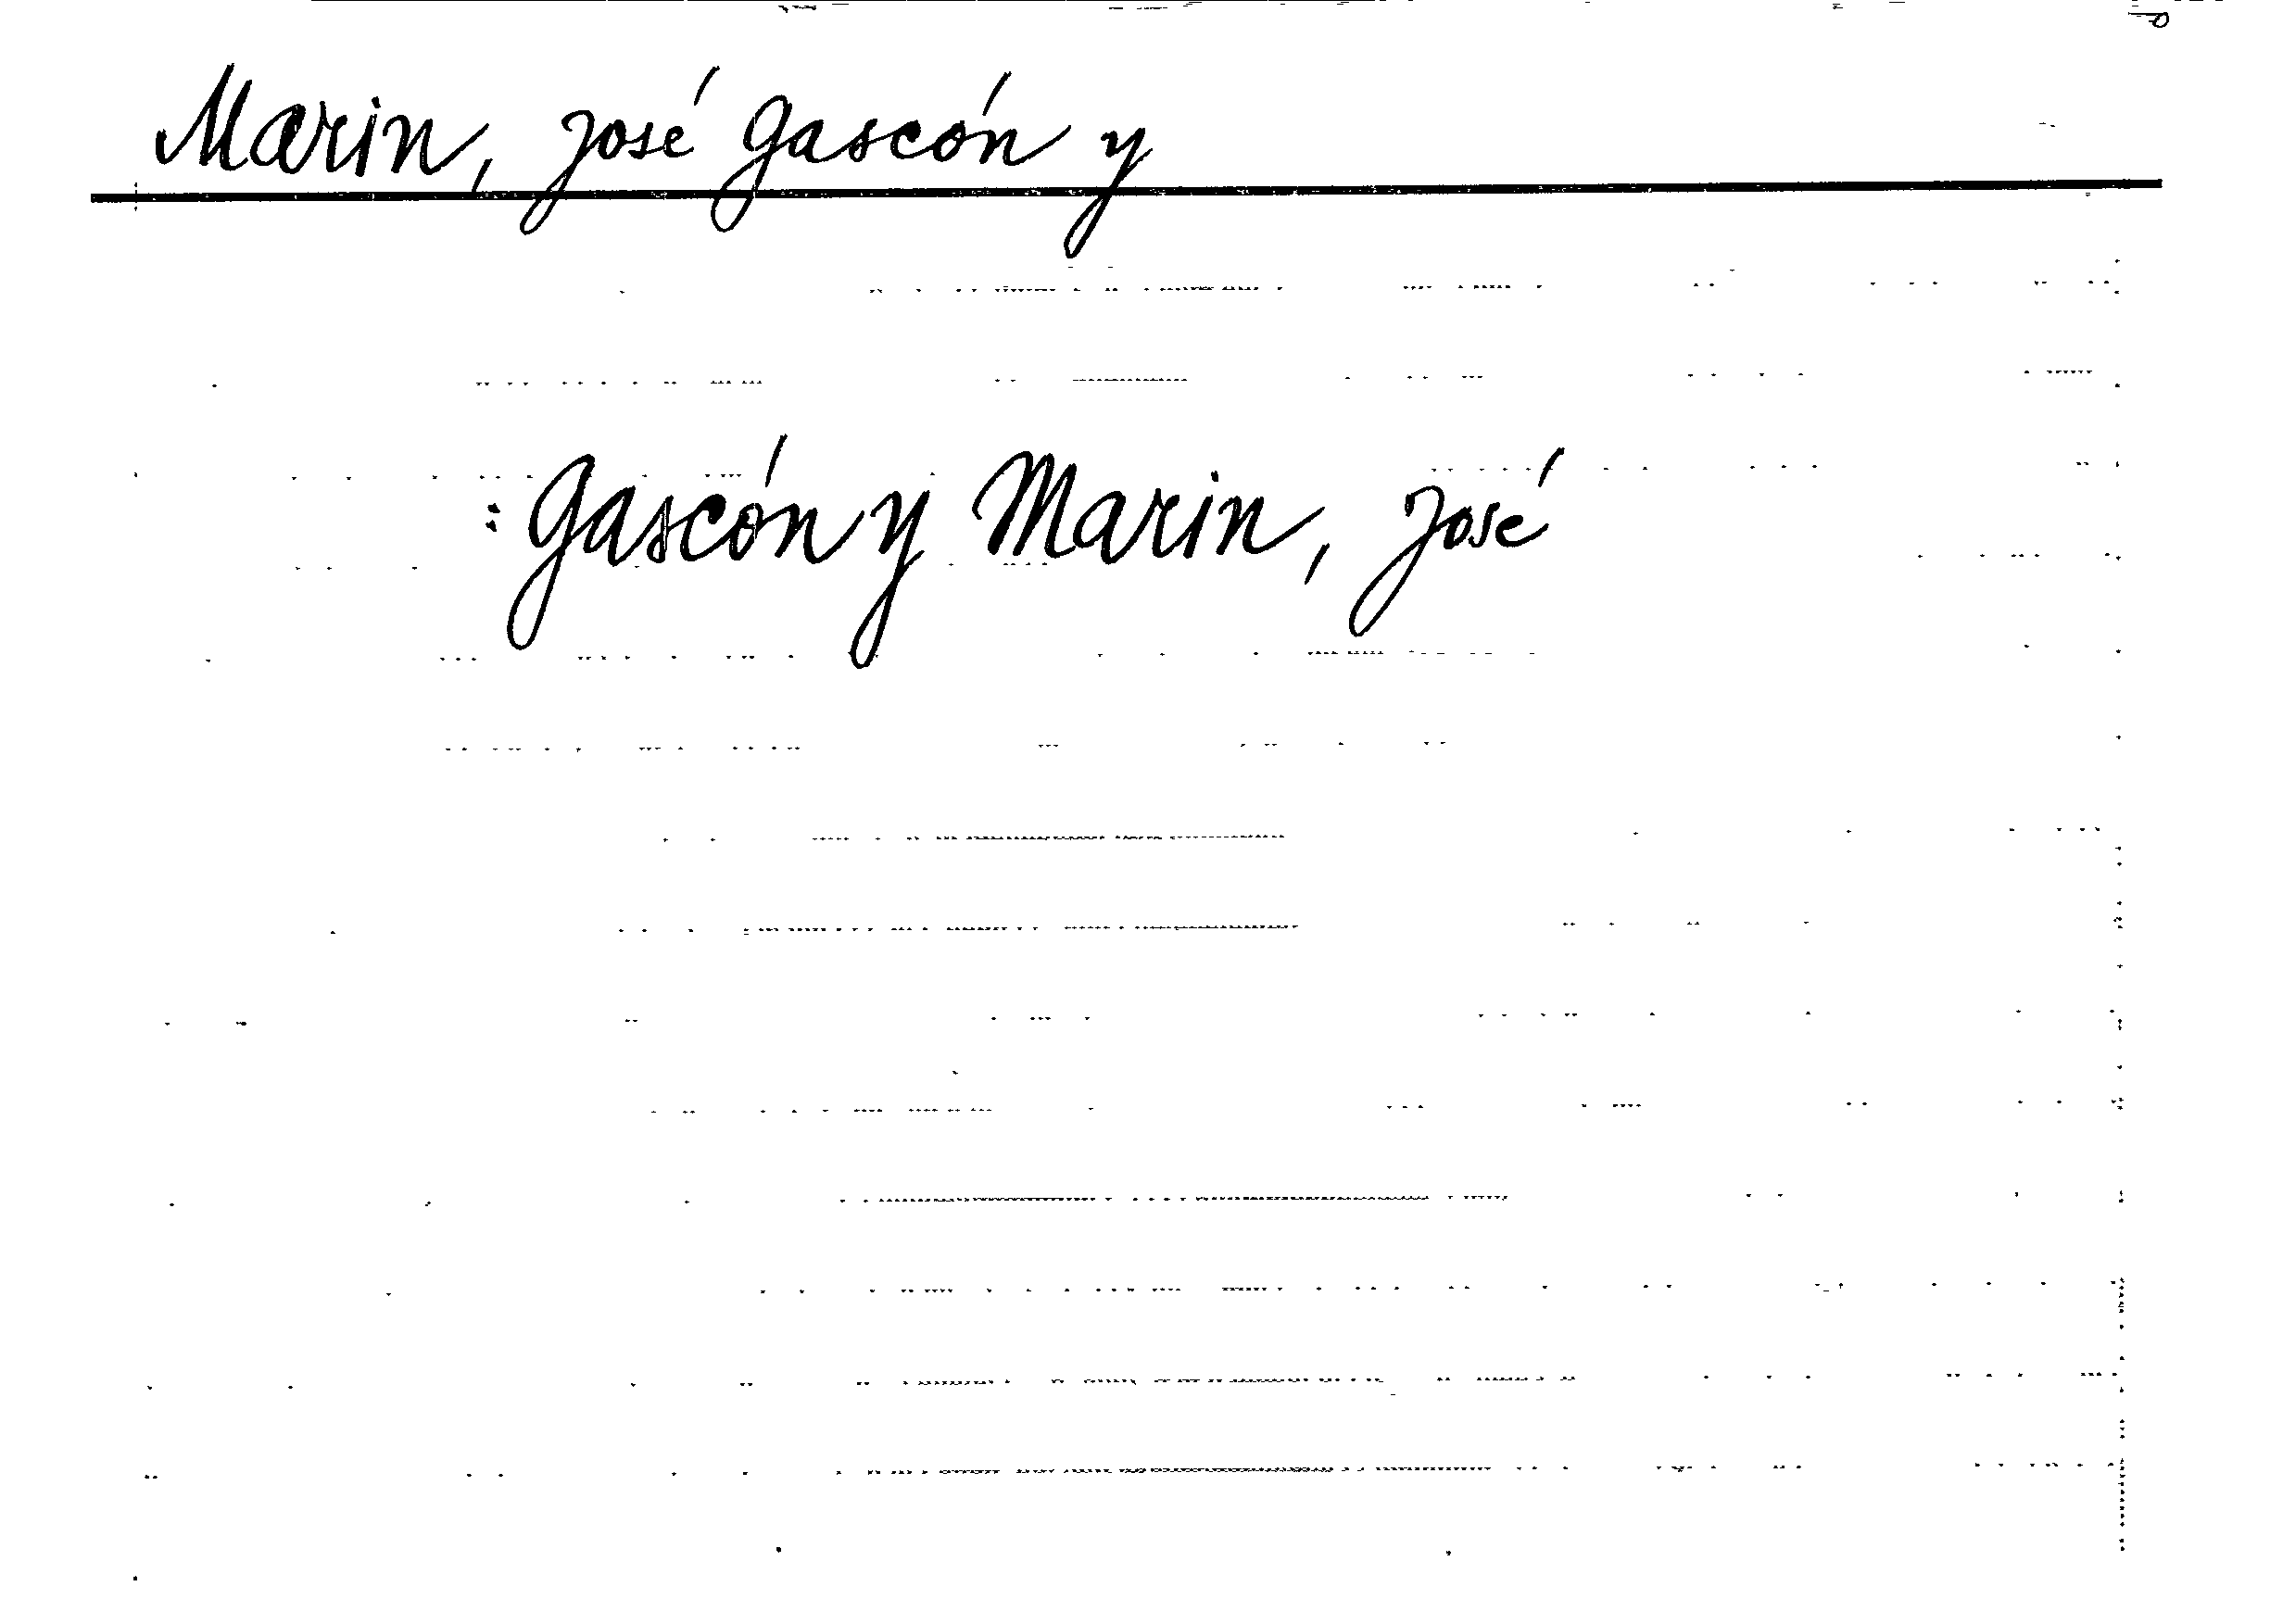 Marin, José Gascón y
: Gascón y Marin, José